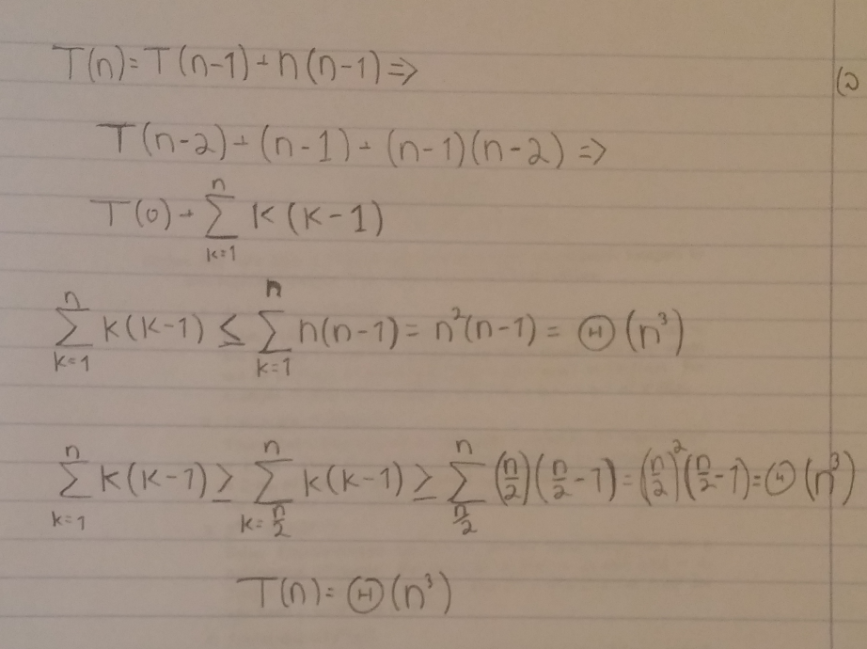 T(n) = T(n-1) + n(n-1) ⇒
T(n-2) + (n-1) + (n-1)(n-2) ⇒
T(0) + ∑_{k=1}^{n} k(k-1)
∑_{k=1}^{n} k(k-1) ≤ ∑_{k=1}^{n} n(n-1) = n²(n-1) = Θ(n³)
∑_{k=1}^{n} k(k-1) ≥ ∑_{k=n/2}^{n} k(k-1) ≥ ∑_{n/2}^{n} (n/2)(n/2 - 1) = (n/2)²(n/2 - 1) = Θ(n³)
T(n) = Θ(n³)